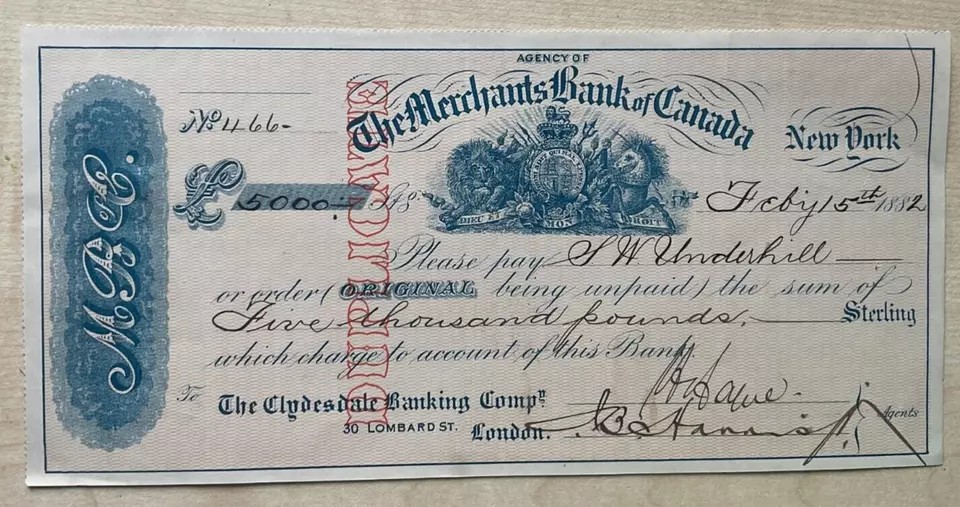 AGENCY OF
The Merchants Bank of Canada
New York
No 466-
£ 5000.-
Feby 15th 1882
DIEU ET MON DROIT
Please pay S W Underhill
or order (ORIGINAL being unpaid) the sum of
Five thousand pounds. Sterling
which charge to account of this Bank.
To The Clydesdale Banking Compy.
30 LOMBARD ST. London.
Agents
M.B.C.
DUPLICATE